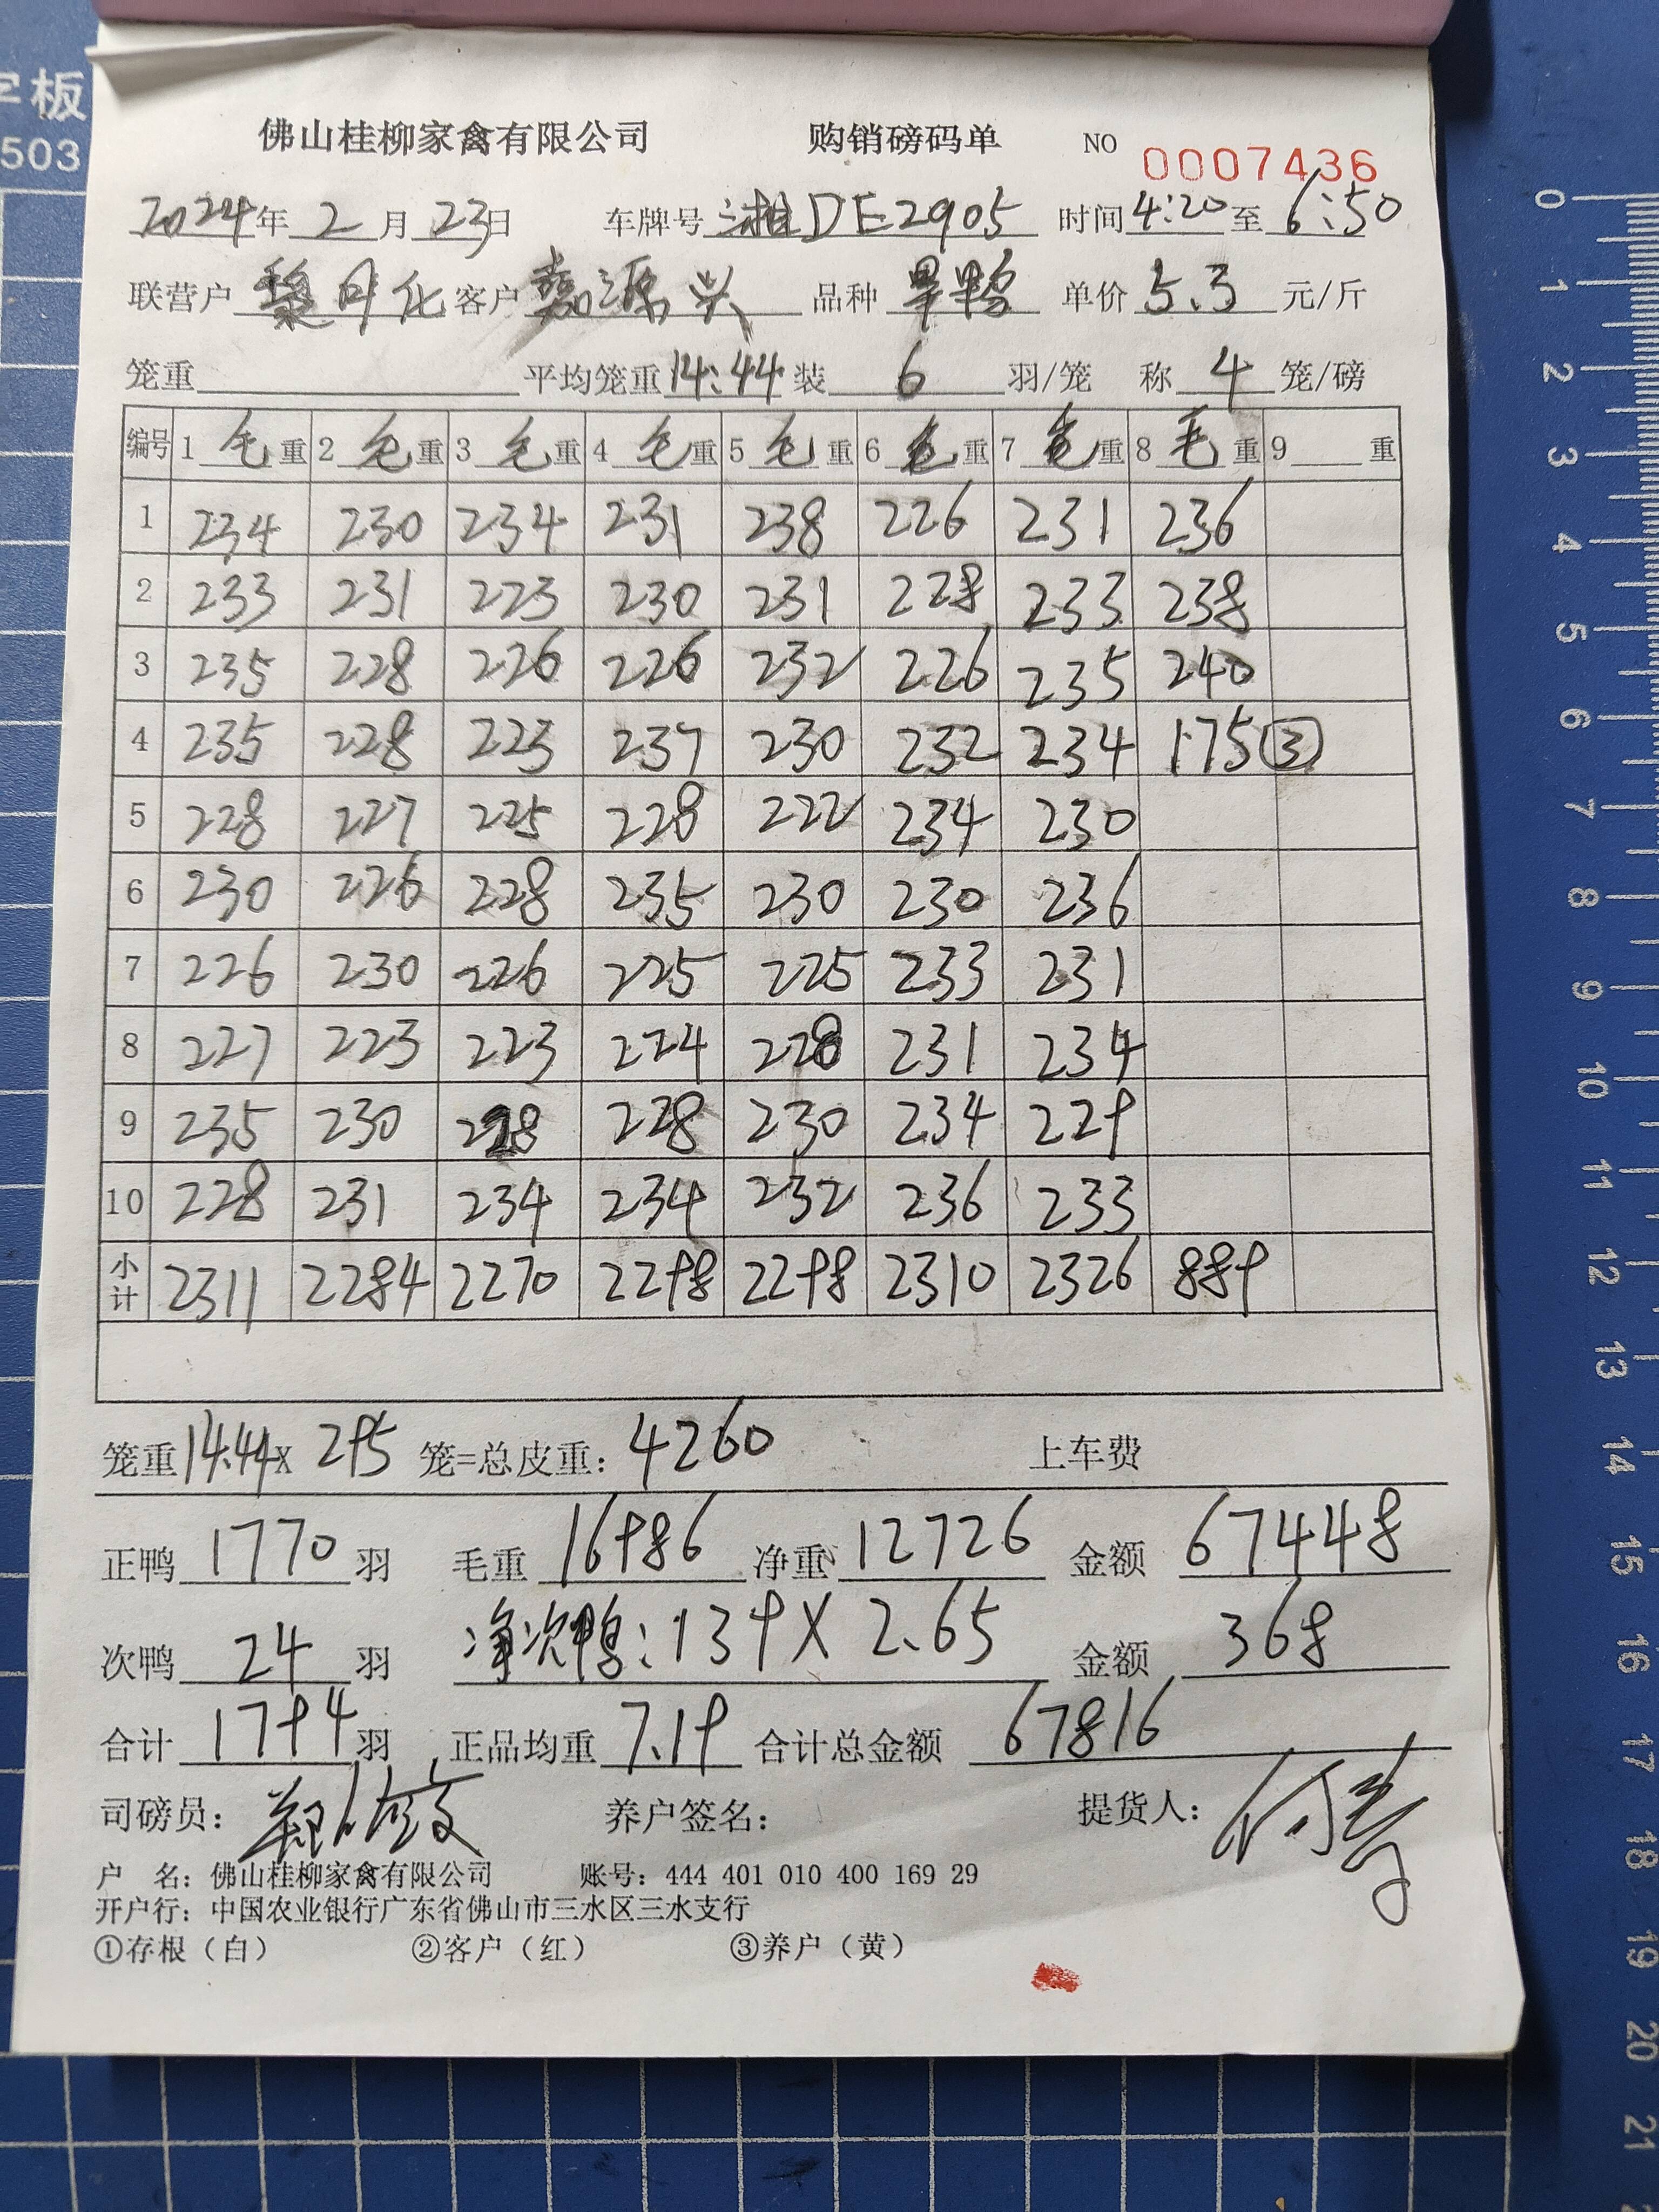 字板
503
佛山桂柳家禽有限公司 购销磅码单 NO 0007436
2024年2月23日 车牌号 湘DE2905 时间4:20至6:50
联营户 黎月化 客户 嘉源兴 品种 旱鸭 单价 5.3 元/斤
笼重 平均笼重14.44装 6 羽/笼 称 4 笼/磅
编号 1 毛 重 2 毛 重 3 毛 重 4 毛 重 5 毛 重 6 毛 重 7 毛 重 8 毛 重 9 重
1 234 230 234 231 238 226 231 236
2 233 231 223 230 231 228 233 238
3 235 228 226 226 232 226 235 240
4 235 228 223 237 230 232 234 175 ③
5 228 227 225 228 222 234 230
6 230 226 228 235 230 230 236
7 226 230 226 225 225 233 231
8 227 223 223 224 228 231 234
9 235 230 228 228 230 234 229
10 228 231 234 234 232 236 233
小计 2311 2284 2270 2298 2298 2310 2326 889
笼重14.44X 295 笼=总皮重: 4260 上车费
正鸭 1770 羽 毛重 16986 净重 12726 金额 67448
次鸭 24 羽 净次鸭: 139 X 2.65 金额 368
合计 1794 羽 正品均重 7.19 合计总金额 67816
司磅员: 养户签名: 提货人:
户 名: 佛山桂柳家禽有限公司 账号: 444 401 010 400 169 29
开户行: 中国农业银行广东省佛山市三水区三水支行
①存根（白） ②客户（红） ③养户（黄）
0
1
2
3
4
5
6
7
8
9
10
11
12
13
14
15
16
17
18
19
20
21